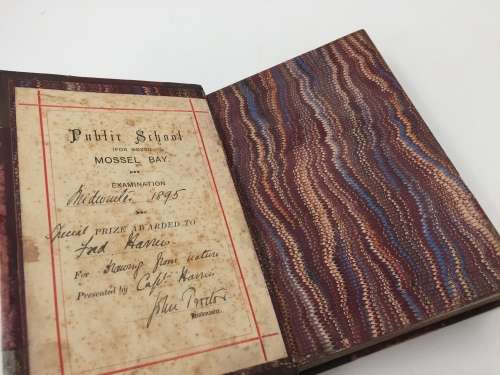 Public School
(FOR BOYS)
MOSSEL BAY
EXAMINATION
Midwinter 1895
Special PRIZE AWARDED TO
Harris
For Drawing from nature
Presented by Capt. Harris
John Proctor
Headmaster.